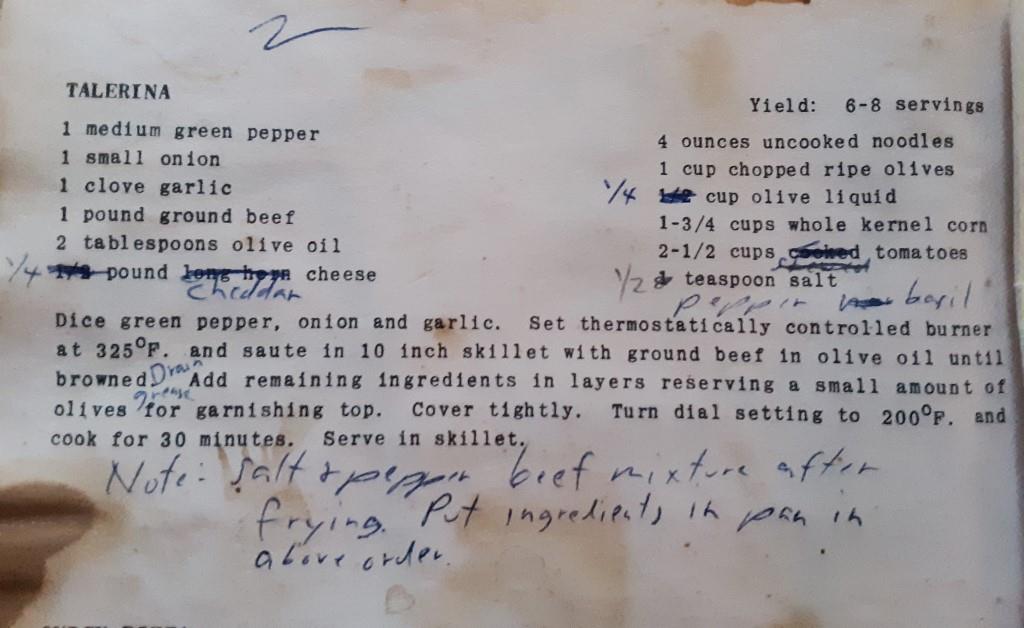 2
TALERINA
Yield: 6-8 servings
1 medium green pepper
1 small onion
1 clove garlic
1 pound ground beef
2 tablespoons olive oil
1/4 1/2 pound long horn cheese
cheddar
4 ounces uncooked noodles
1 cup chopped ripe olives
1/4 1/2 cup olive liquid
1-3/4 cups whole kernel corn
2-1/2 cups cooked tomatoes
1/2 1 teaspoon salt
pepper basil
Dice green pepper, onion and garlic. Set thermostatically controlled burner
at 325°F. and saute in 10 inch skillet with ground beef in olive oil until
browned. Drain grease Add remaining ingredients in layers reserving a small amount of
olives for garnishing top. Cover tightly. Turn dial setting to 200°F. and
cook for 30 minutes. Serve in skillet.
Note: Salt & pepper beef mixture after
frying. Put ingredients in pan in
above order.